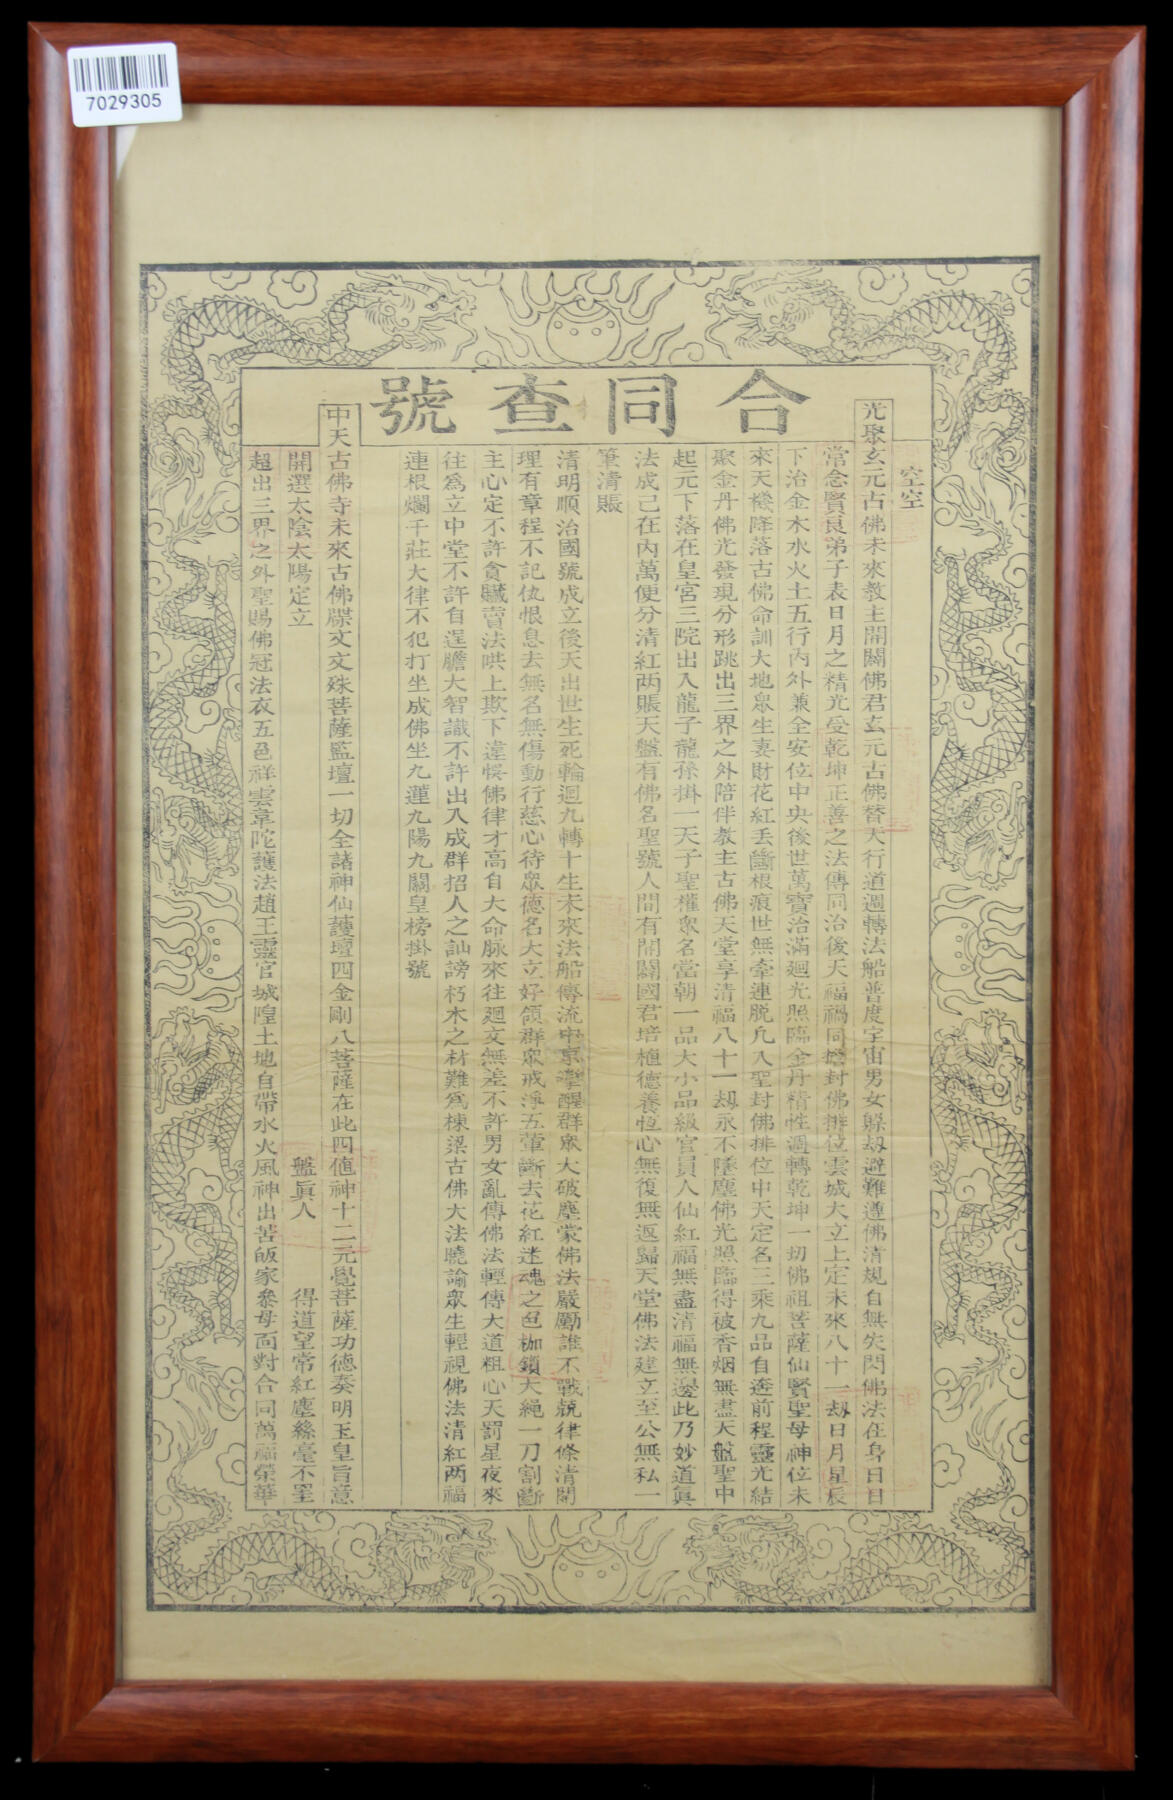 7029305
合同查號
空空
光聚玄元古佛未來教主開闢佛君玄元古佛替天行道週轉法船普度宇宙男女躲刼避難遵佛清規自無失閃佛法在身日日
常念賢良弟子表日月之精光受乾坤正善之法傳同治後天福禍同擔封佛排位雲城大立上定未來八十一刼日月星辰
下治金木水火土五行內外兼全安位中央後世萬寶治滿廻光照臨金丹精性週轉乾坤一切佛祖菩薩仙賢聖母神位未
來天機降落古佛命訓大地眾生妻財花紅丟斷根痕世無牽連脫凡入聖封佛排位中天定名三乘九品自造前程靈光結
聚金丹佛光發現分形跳出三界之外陪伴教主古佛天堂享清福八十一刼永不墜塵佛光照臨得被香烟無盡天盤聖中
起元下落在皇宮三院出入龍子龍孫掛一天子聖權眾名當朝一品大小品級官員人仙紅福無盡清福無邊此乃妙道真
法成己在內萬便分清紅两賬天盤有佛名聖號人間有開闢國君培植德養恆心無復無返歸天堂佛法建立至公無私一
筆清賬
清明順治國號成立後天出世生死輪迴九轉十生未來法船傳流中京擊醒群眾大破塵蒙佛法嚴勵誰不戰兢律條清開
理有章程不記仇恨息去無名無傷動行慈心待眾德名大立好領群眾戒淨五葷斷去花紅迷魂之色枷鎖大繩一刀割斷
主心定不許貪贓賣法哄上欺下違悞佛律才高自大命脉來往廻文無差不許男女亂傳佛法輕傳大道粗心天罰星夜來
往為立中堂不許自逞膽大智識不許出入成群招人之訕謗朽木之材難為棟梁古佛大法曉諭眾生輕視佛法清紅两福
連根爛千莊大律不犯打坐成佛坐九蓮九陽九關皇榜掛號
中天古佛寺未來古佛牒文文殊菩薩監壇一切全諸神仙護壇四金剛八菩薩在此四値神十二元覺菩薩功德奏明玉皇旨意
開選太陰太陽定立 盤真人 得道望常紅塵絲毫不罣
超出三界之外聖賜佛冠法衣五色祥雲韋陀護法趙王靈官城隍土地自帶水火風神出苦皈家叅母面對合同萬福榮華